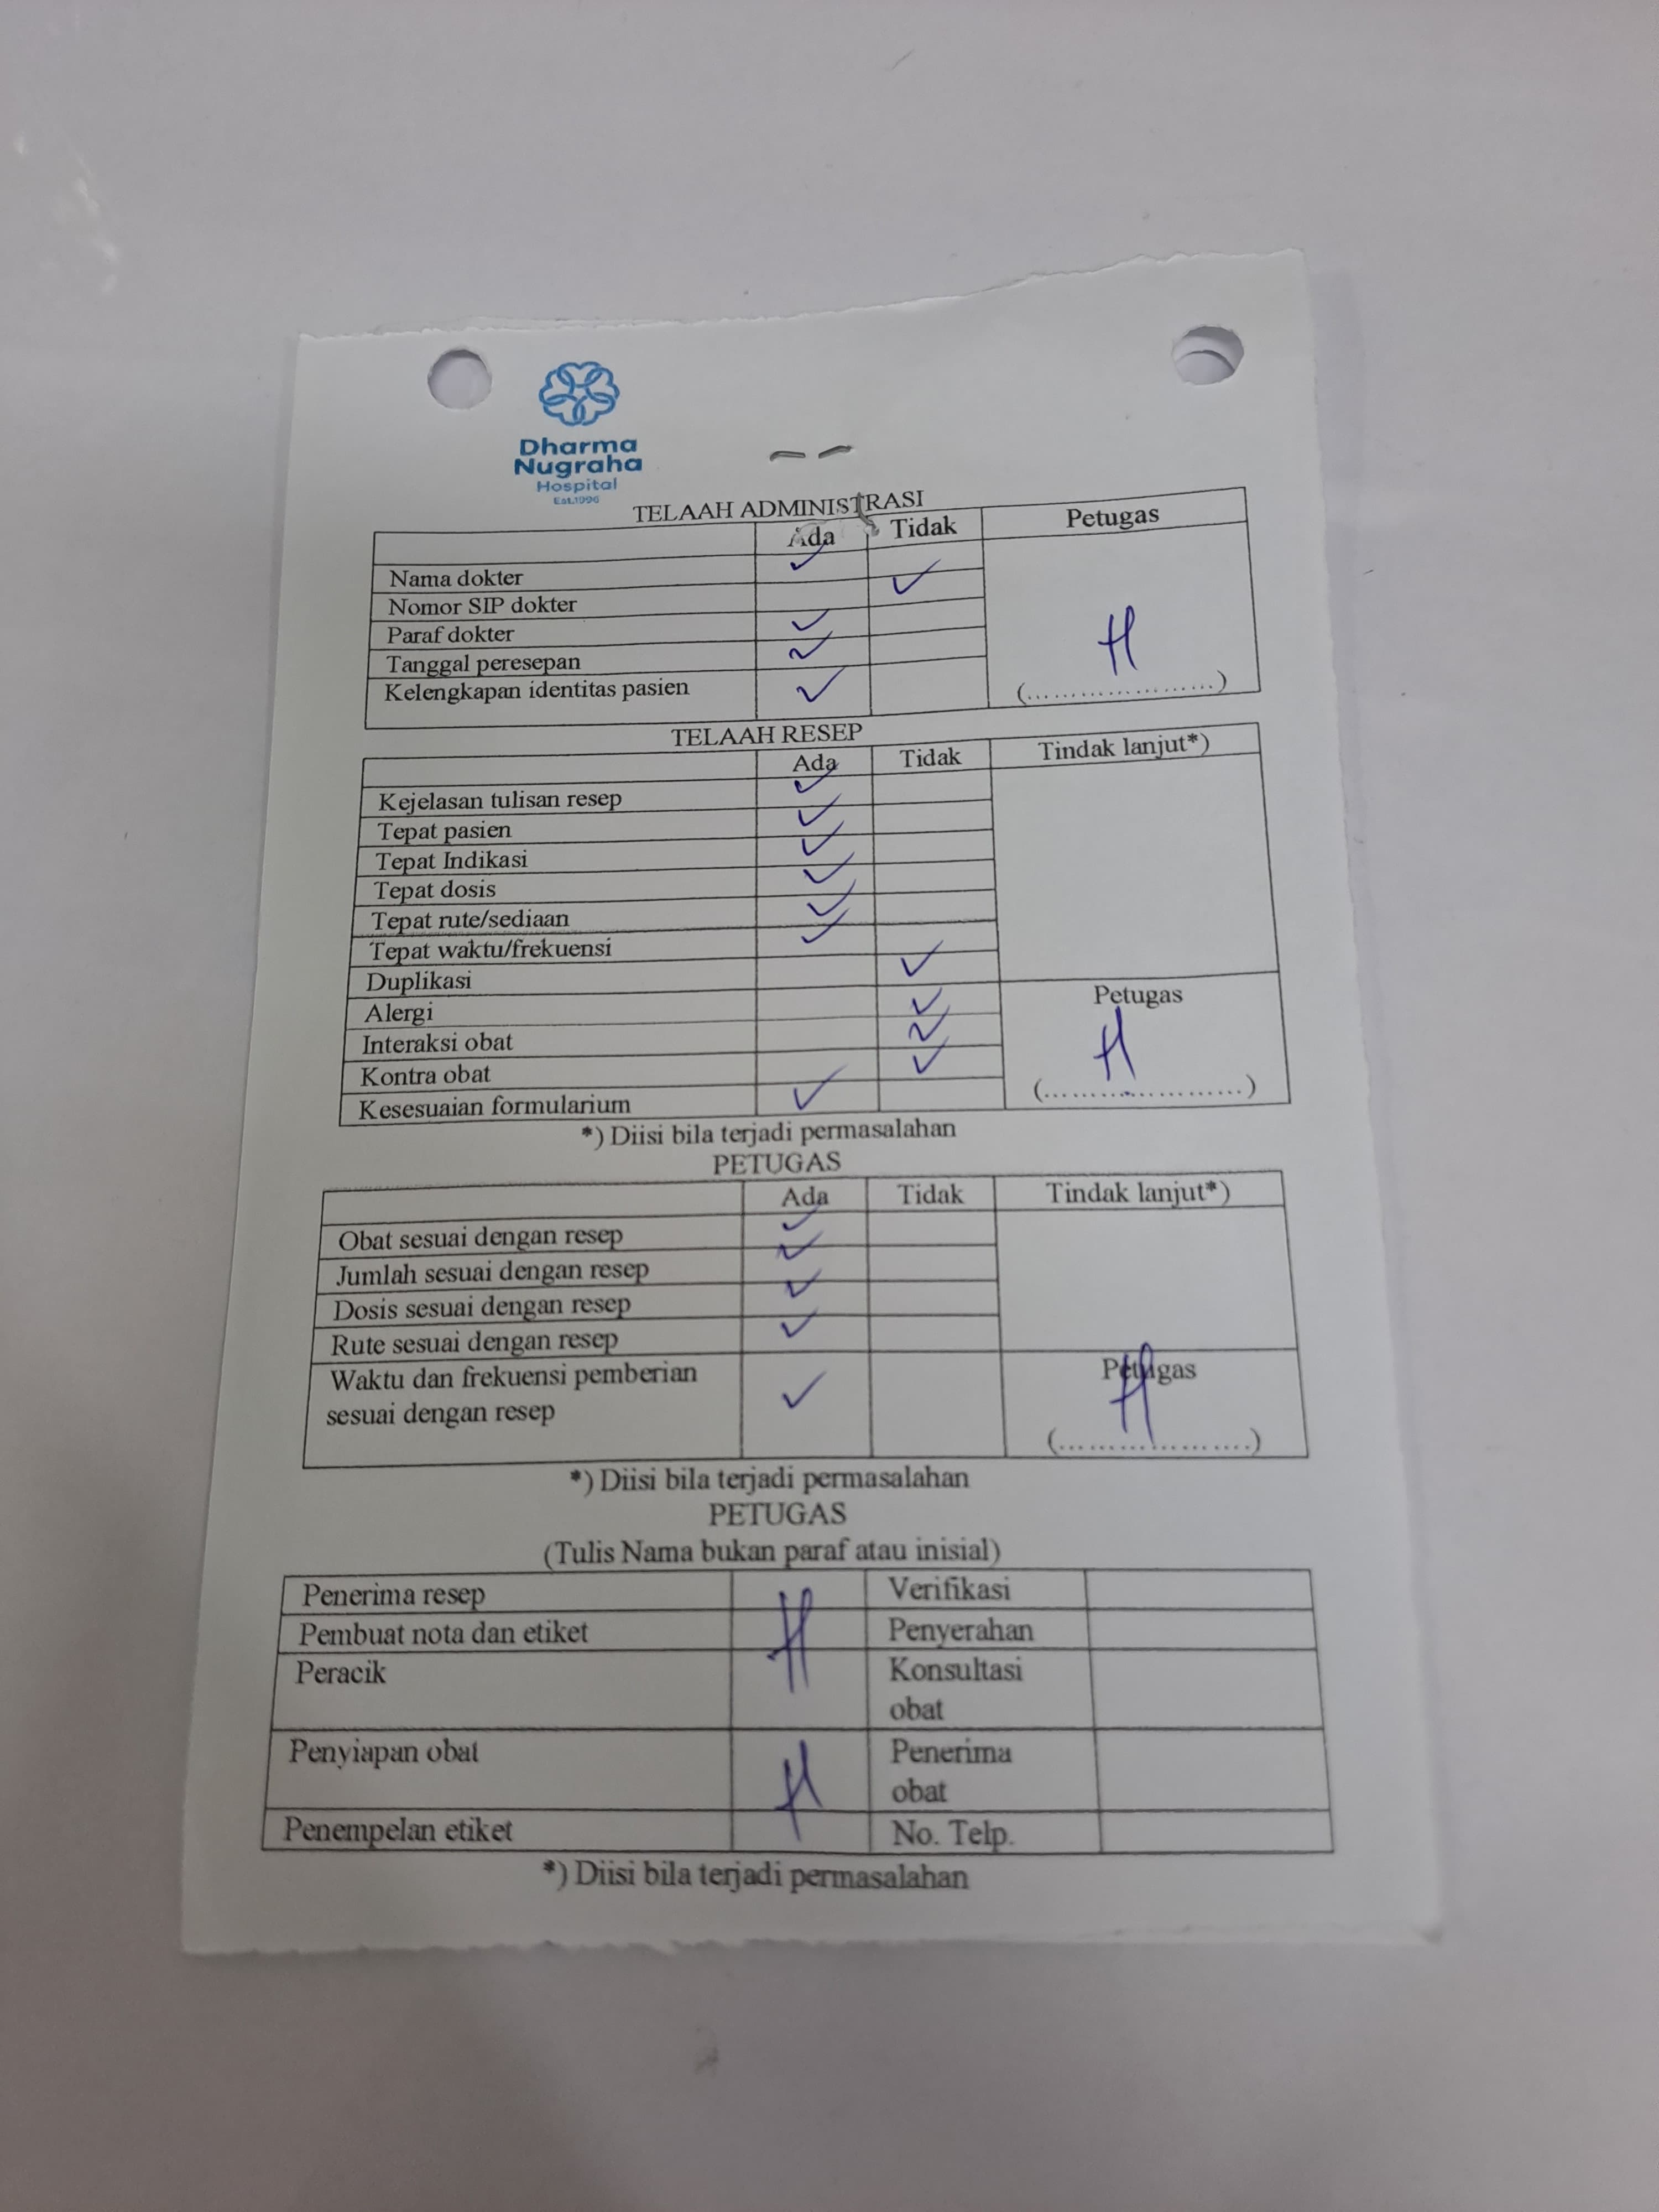 Dharma
Nugraha
Hospital
Est.1996
TELAAH ADMINISTRASI
Ada Tidak Petugas
Nama dokter ✓
Nomor SIP dokter ✓
Paraf dokter ✓
Tanggal peresepan ✓
Kelengkapan identitas pasien ✓ (......................)
TELAAH RESEP
Ada Tidak Tindak lanjut*)
Kejelasan tulisan resep ✓
Tepat pasien ✓
Tepat Indikasi ✓
Tepat dosis ✓
Tepat rute/sediaan ✓
Tepat waktu/frekuensi ✓
Duplikasi ✓
Alergi ✓ Petugas
Interaksi obat ✓
Kontra obat ✓
Kesesuaian formularium ✓ (......................)
*) Diisi bila terjadi permasalahan
PETUGAS
Ada Tidak Tindak lanjut*)
Obat sesuai dengan resep ✓
Jumlah sesuai dengan resep ✓
Dosis sesuai dengan resep ✓
Rute sesuai dengan resep ✓
Waktu dan frekuensi pemberian ✓ Petugas
sesuai dengan resep (......................)
*) Diisi bila terjadi permasalahan
PETUGAS
(Tulis Nama bukan paraf atau inisial)
Penerima resep Verifikasi
Pembuat nota dan etiket Penyerahan
Peracik Konsultasi
obat
Penyiapan obat Penerima
obat
Penempelan etiket No. Telp.
*) Diisi bila terjadi permasalahan